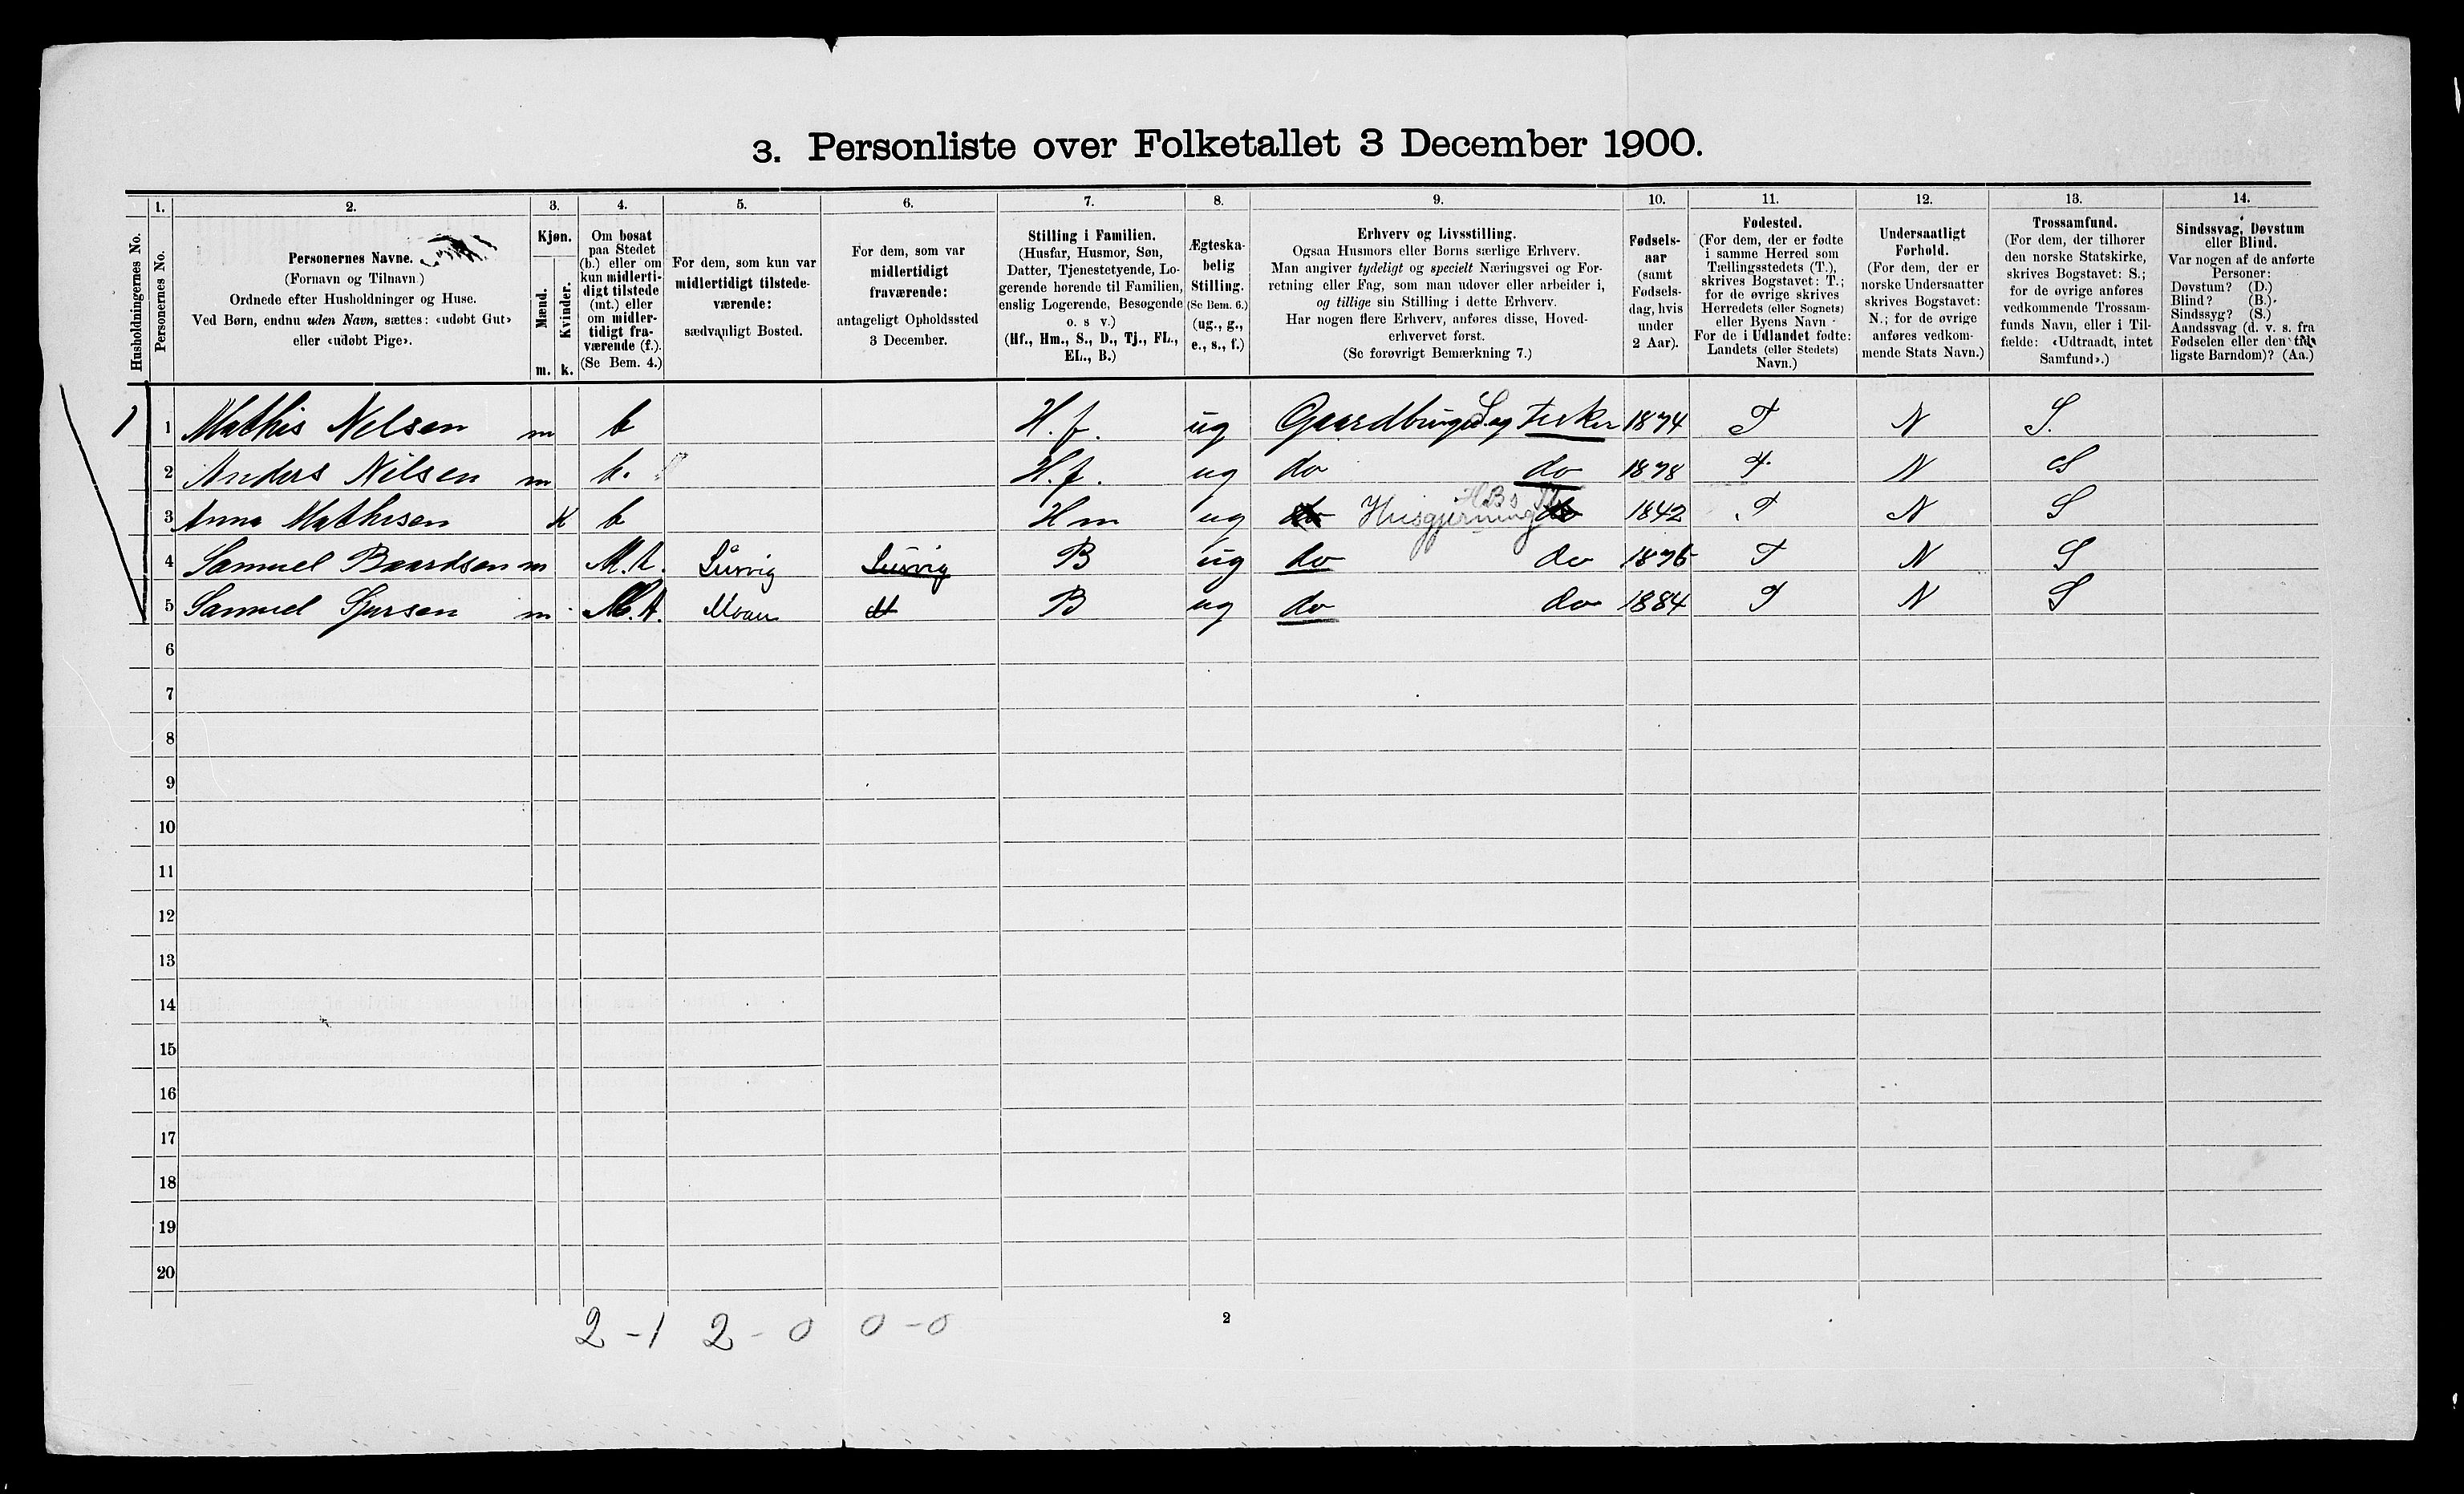 3. Personliste over Folketallet 3 December 1900.
1. 2. 3. 4. 5. 6. 7. 8. 9. 10. 11. 12. 13. 14.
Husholdningernes No.
Personernes No.
Personernes Navne.
(Fornavn og Tilnavn)
Ordnede efter Husholdninger og Huse.
Ved Børn, endnu uden Navn, sættes: «udøbt Gut»
eller «udøbt Pige».
Kjøn.
Mænd.
Kvinder.
m. k.
Om bosat
paa Stedet
(b.) eller om
kun midlerti-
digt tilstede
(mt.) eller
om midler-
tidigt fra-
værende (f.).
(Se Bem. 4.)
For dem, som kun var
midlertidigt tilstede-
værende:
sædvanligt Bosted.
For dem, som var
midlertidigt
fraværende:
antageligt Opholdssted
3 December.
Stilling i Familien.
(Husfar, Husmor, Søn,
Datter, Tjenestetyende, Lo-
gerende hørende til Familien,
enslig Logerende, Besøgende
o. s v.)
(Hf., Hm., S., D., Tj., FL.,
EL., B.)
Ægteska-
belig
Stilling.
(Se Bem. 6.)
(ug., g.,
e., s., f.)
Erhverv og Livsstilling.
Ogsaa Husmors eller Børns særlige Erhverv.
Man angiver tydeligt og specielt Næringsvei og For-
retning eller Fag, som man udøver eller arbeider i,
og tillige sin Stilling i dette Erhverv.
Har nogen flere Erhverv, anføres disse, Hoved-
erhvervet først.
(Se forøvrigt Bemærkning 7.)
Fødsels-
aar
(samt
Fødsels-
dag, hvis
under
2 Aar).
Fødested.
(For dem, der er fødte
i samme Herred som
Tællingsstedets (T.),
skrives Bogstavet: T.;
for de øvrige skrives
Herredets (eller Sognets)
eller Byens Navn
For de i Udlandet fødte:
Landets (eller Stedets)
Navn.)
Undersaatligt
Forhold.
(For dem, der er
norske Undersaatter
skrives Bogstavet:
N.; for de øvrige
anføres vedkom-
mende Stats Navn.)
Trossamfund.
(For dem, der tilhører
den norske Statskirke,
skrives Bogstavet: S.;
for de øvrige anføres
vedkommende Trossam-
funds Navn, eller i Til-
fælde: «Udtraadt, intet
Samfund».)
Sindssvag, Døvstum
eller Blind.
Var nogen af de anførte
Personer:
Døvstum? (D.)
Blind? (B.)
Sindssyg? (S.)
Aandssvag (d. v. s. fra
Fødselen eller den tid-
ligste Barndom)? (Aa.)
1 1 Mathis Nilsen m b H.f. ug Gaardbruger og Fisker 1874 T N S.
2 Anders Nilsen m b. H.f. ug do do 1878 T. N S
3 Anna Mathisen K b Hm ug do Husgjerning do 1842 T N S
4 Samuel Baardsen m M.t. Lusvig Lusvig B ug do do 1876 T N S
5 Samuel Sjursen m M.t. Moan B ug do do 1884 T N S
6
7
8
9
10
11
12
13
14
15
16
17
18
19
20
2-1 2-0 0-0
2